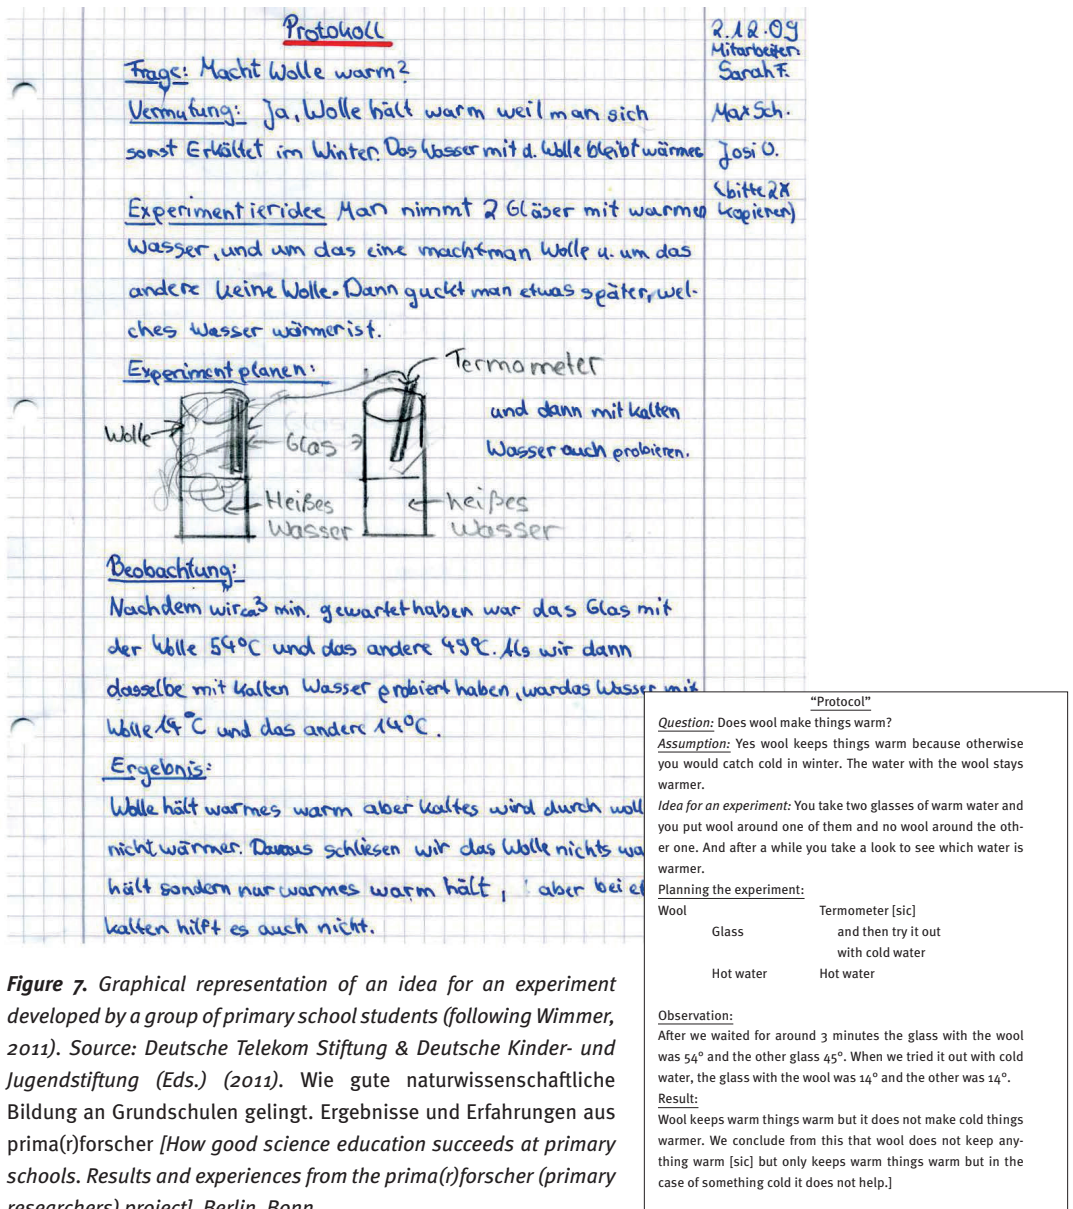 Protokoll
2.12.09
Mitarbeiter:
Sarah F.
Max Sch.
Josi O.
(bitte 2x
kopieren)
Frage: Macht Wolle warm?
Vermutung: Ja, Wolle hält warm weil man sich
sonst Erkältet im Winter. Das Wasser mit d. Wolle bleibt wärmer
Experimentieridee Man nimmt 2 Gläser mit warmen
Wasser, und um das eine macht man Wolle u. um das
andere keine Wolle. Dann guckt man etwas später, wel-
ches Wasser wärmer ist.
Experiment planen:
Termometer
und dann mit kalten
Wasser auch probieren.
Wolle
Glas
Heißes
Wasser
heißes
Wasser
Beobachtung:
Nachdem wir ca 3 min. gewartet haben war das Glas mit
der Wolle 54°C und das andere 49°C. Als wir dann
dasselbe mit kalten Wasser probiert haben, war das Wasser mit
Wolle 14°C und das andere 14°C.
Ergebnis:
Wolle hält warmes warm aber kaltes wird durch woll
nicht wärmer. Daraus schliesen wir das Wolle nichts wa
hält sondern nur warmes warm hält, aber bei et
kalten hilft es auch nicht.
"Protocol"
Question: Does wool make things warm?
Assumption: Yes wool keeps things warm because otherwise
you would catch cold in winter. The water with the wool stays
warmer.
Idea for an experiment: You take two glasses of warm water and
you put wool around one of them and no wool around the oth-
er one. And after a while you take a look to see which water is
warmer.
Planning the experiment:
Wool Termometer [sic]
Glass and then try it out
with cold water
Hot water Hot water
Observation:
After we waited for around 3 minutes the glass with the wool
was 54° and the other glass 45°. When we tried it out with cold
water, the glass with the wool was 14° and the other was 14°.
Result:
Wool keeps warm things warm but it does not make cold things
warmer. We conclude from this that wool does not keep any-
thing warm [sic] but only keeps warm things warm but in the
case of something cold it does not help.]
Figure 7. Graphical representation of an idea for an experiment
developed by a group of primary school students (following Wimmer,
2011). Source: Deutsche Telekom Stiftung & Deutsche Kinder- und
Jugendstiftung (Eds.) (2011). Wie gute naturwissenschaftliche
Bildung an Grundschulen gelingt. Ergebnisse und Erfahrungen aus
prima(r)forscher [How good science education succeeds at primary
schools. Results and experiences from the prima(r)forscher (primary
researchers) project]. Berlin, Bonn